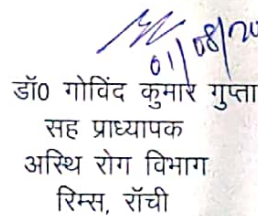 01/08/20
डॉ0 गोविंद कुमार गुप्ता
सह प्राध्यापक
अस्थि रोग विभाग
रिम्स, रॉची